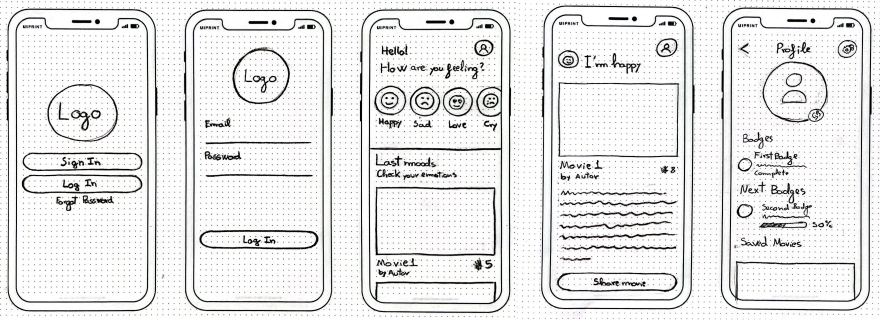 MIPRINT
Logo
Sign In
Log In
Forgot Password
MIPRINT
Logo
Email
Password
Log In
MIPRINT
Hello!
How are you feeling?
Happy Sad Love Cry
Last moods
Check your emotions
Movie 1
by Autor
#5
MIPRINT
I'm happy
Movie 1
by Autor
#8
Share movie
MIPRINT
Profile
Badges
First Badge
Complete
Next Badges
Second Badge
50%
Saved Movies